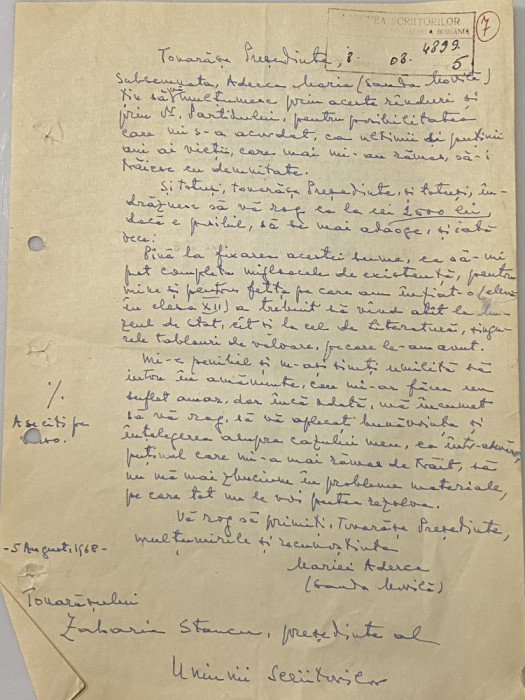 UNIUNEA SCRIITORILOR
ROMÂNIA
4899
8. 08. 5
7
Tovarășe Președinte,
Subsemnata, Aderca Maria (Sanda Movilă)
țin să vă mulțumesc prin aceste rânduri și
prin Dv. Partidului, pentru posibilitatea
care mi s-a acordat, ca ultimii și puținii
ani ai vieții, care mai mi-au rămas, să-i
trăiesc cu demnitate.
Și totuși, tovarășe Președinte, și totuși, în-
drăznesc să vă rog ca la cei 2000 lei,
dacă e posibil, să se mai adaoge, și iată
dece:
Pînă la fixarea acestei sume, ca să-mi
pot completa mijloacele de existență, pentru
mine și pentru fetița pe care am înfiat-o (elevă
în clasa XII) a trebuit să vînd atît la Mu-
zeul de Stat, cît și la cel de Literatură, singu-
rele tablouri de valoare, pe care le-am avut.
Mi-e penibil și m-aș simți umilită să
intru în amănunte, care mi-ar face un
suflet amar, dar încă odată, mă încumet
să vă rog, să vă aplecați bunăvoința și
înțelegerea asupra cazului meu, ca într-adevăr,
puținul care mi-a mai rămas de trăit, să
nu mă mai zbucium în probleme materiale,
pe care tot nu le voi putea rezolva.
Vă rog să primiți, Tovarășe Președinte,
mulțumirile și recunoștința
Mariei Aderca
(Sanda Movilă)
%
A se citi pe
- 5 August, 1968 -
Tovarășului
Zaharia Stancu, președinte al
Uniunii Scriitorilor